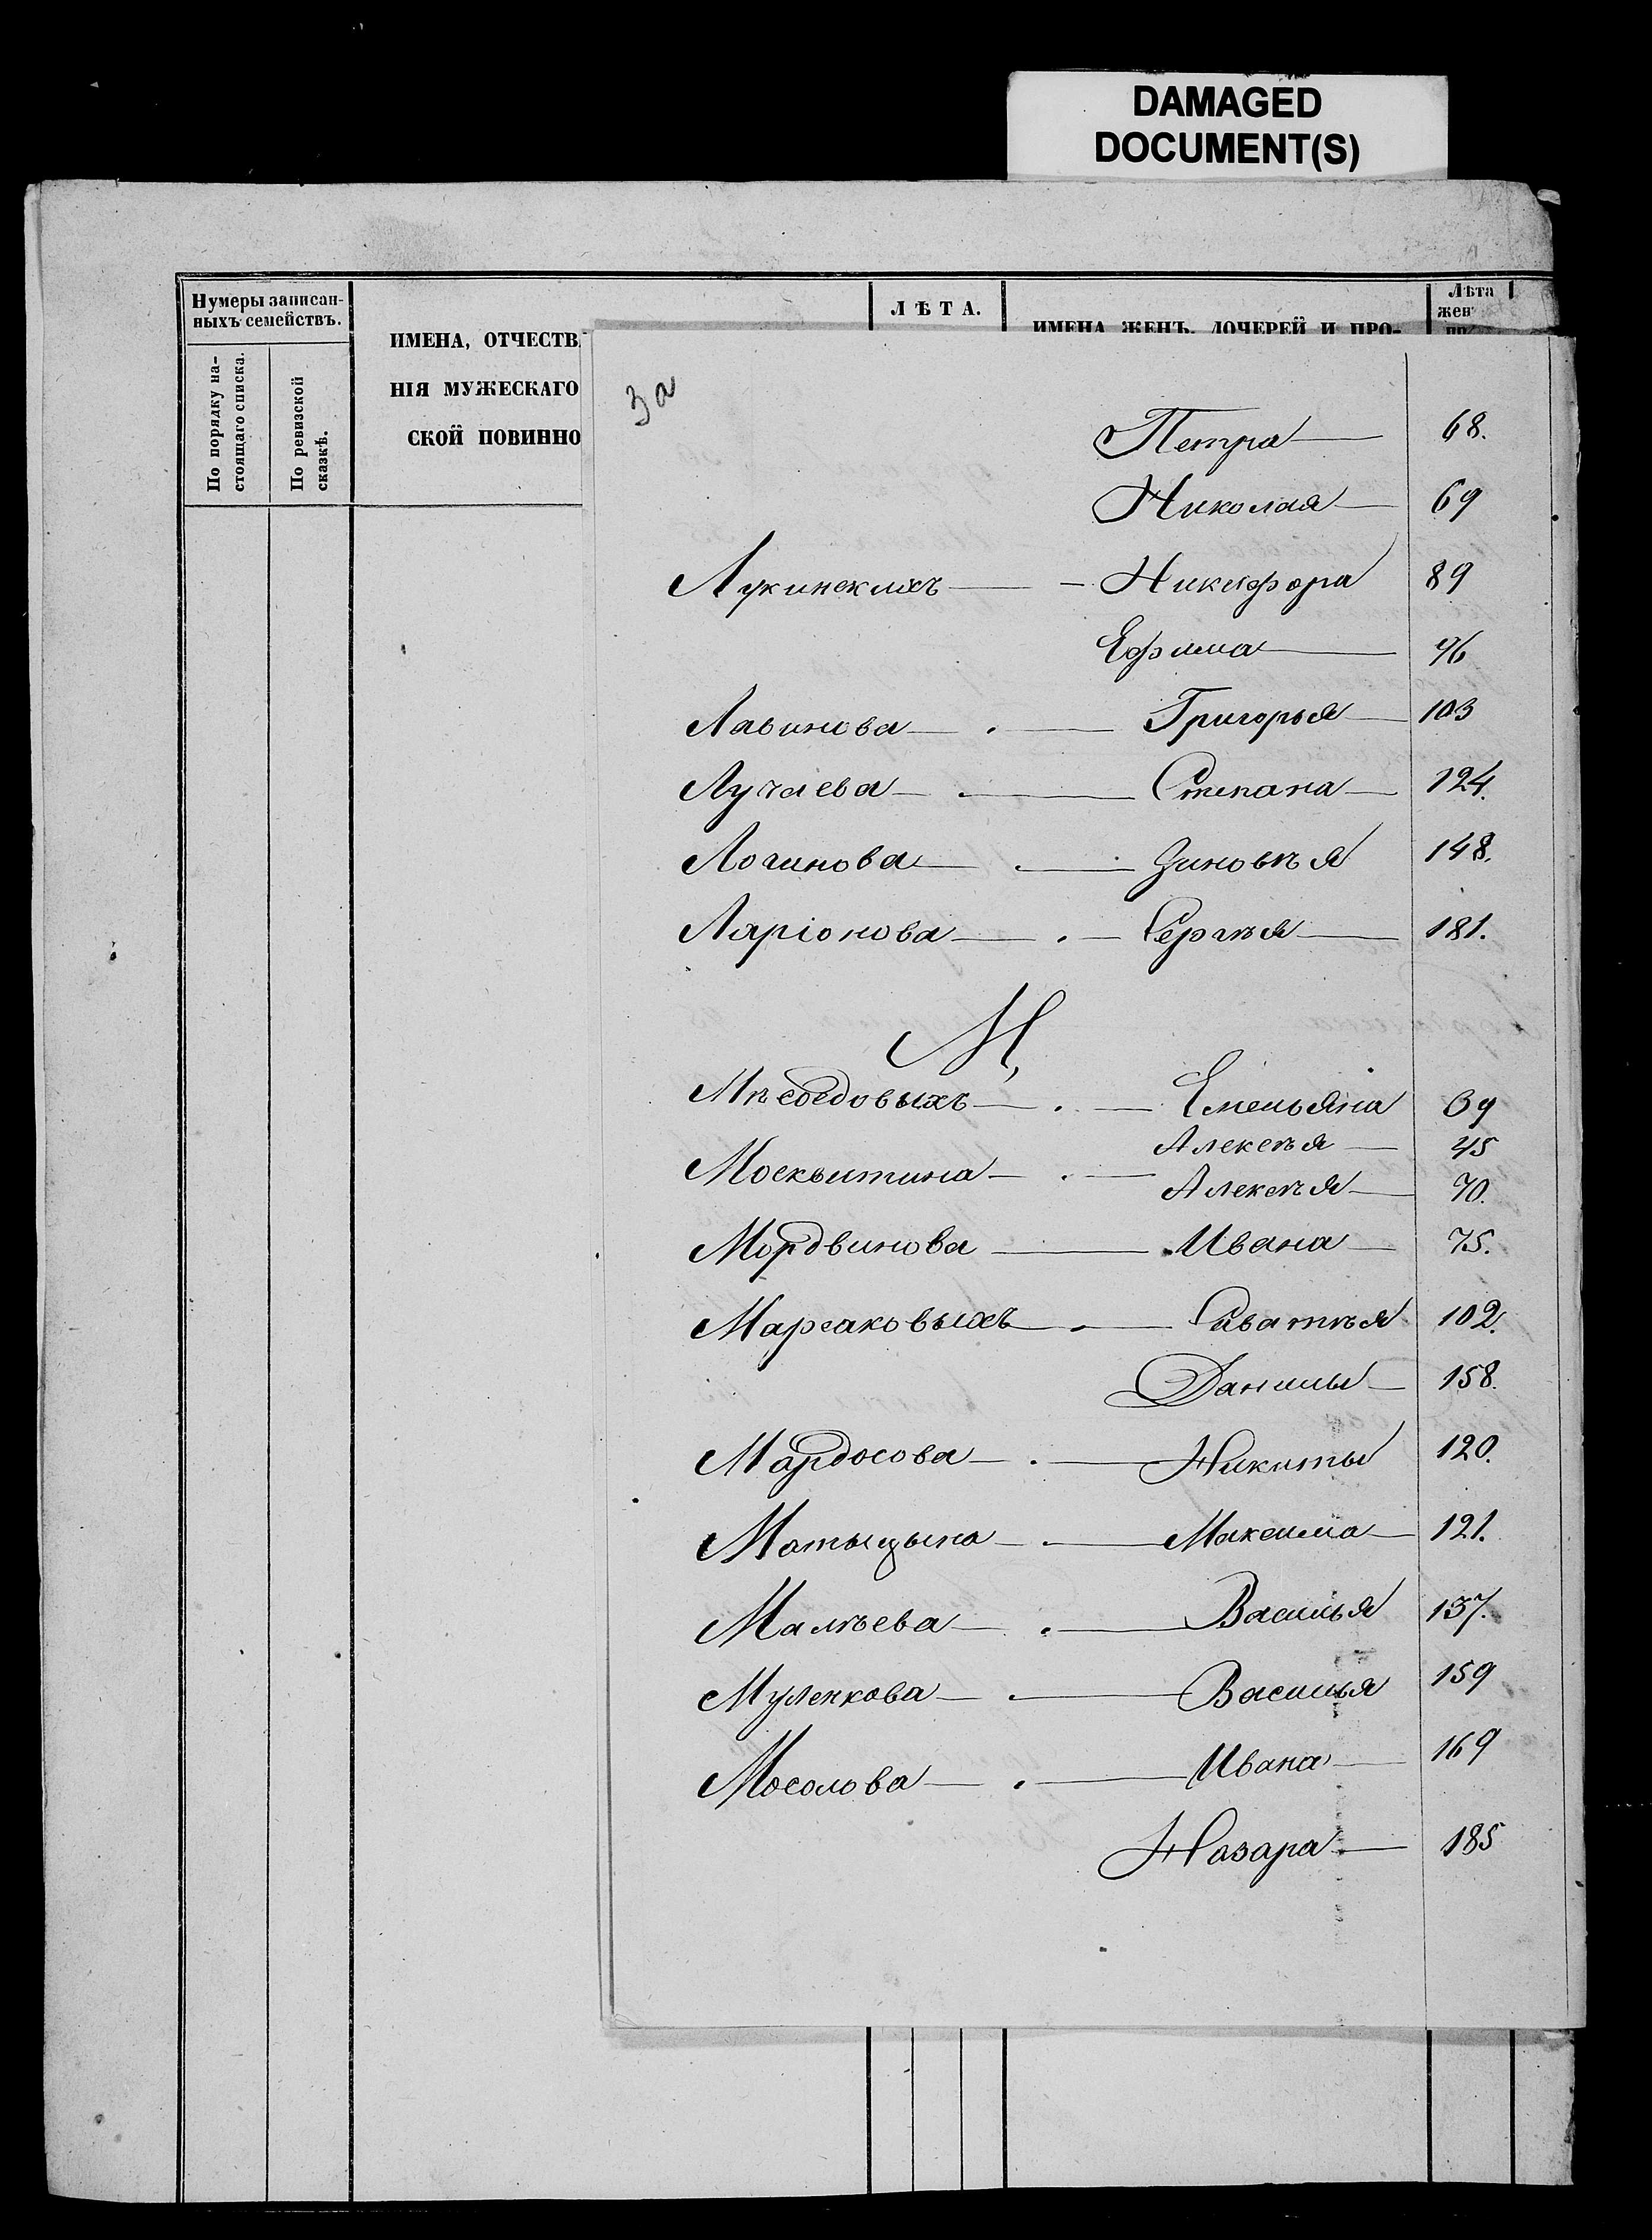 DAMAGED
DOCUMENT(S)
Нумеры записан-
ныхъ семействъ.
По порядку на-
стоящаго списка.
По ревизской
сказкѣ.
ИМЕНА, ОТЧЕСТВ
НІЯ МУЖЕСКАГО
СКОЙ ПОВИННО
ЛѢТА.
ИМЕНА ЖЕНЪ, ДОЧЕРЕЙ И ПРО-
Лѣта
жен
3а
Петра — 68.
Николая — 69
Лукинскихъ — Никифора 89
Ефима — 96
Лавинова — Григорья — 103
Лучаева — Степана — 124.
Логинова — Зиновѣя 148.
Ларіонова — Сергѣя — 181.
М,
Емельяна 39
Алексѣя — 45
Москвитина — Алексѣя — 70.
Мордвинова — Ивана — 75.
Марсаковыхъ — Саватѣя 102.
Данилы — 158.
Мардосова — Никиты 120.
Матыцына — Максима — 121.
Малѣева — Василья 137.
Муленкова — Василья 159
Мосолова — Ивана — 169
Назара — 185